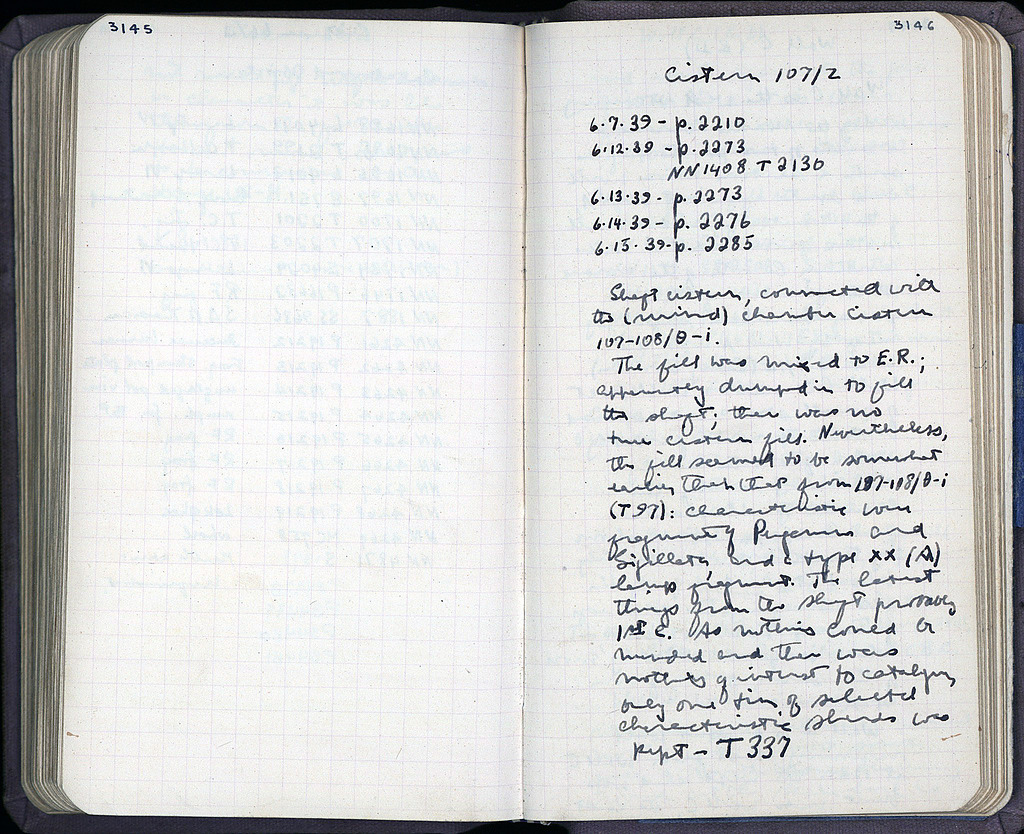 3145
3146
Cistern 107/Z
6.7.39 - p. 2210
6.12.39 - p. 2273
NN1408 T 2130
6.13.39 - p. 2273
6.14.39 - p. 2276
6.15.39 - p. 2285
Shaft cistern, connected with
the chamber cistern
107-108/Θ-i.
The fill was mixed to E.R.;
apparently dumped in to fill
the shaft; there was no
true cistern fill. Nevertheless,
the fill seemed to be somewhat
earlier than that from 107-108/Θ-i
(T97): characteristic were
fragments of Pergamene and
Sigillata, and a type XX (A)
lamp fragment. The latest
things from the shaft probably
1st c. As nothing could be
mended and there was
nothing of interest to catalogue,
only one tin of selected
characteristic sherds was
kept - T 337